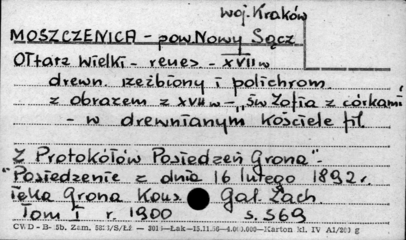 woj. Kraków
MOSZCZENICA - pow. Nowy Sącz
Ołtarz wielki - renes - XVII w
drewn. rzeźbiony i polichrom.
z obrazem z XVII w - "św Zofia z córkami"
- w drewnianym kościele fil.
"Z Protokółów Posiedzeń Grona"-
"Posiedzenie z dnia 16 lutego 1892 r.
Teka Grona Kons. Gal. Zach.
Tom I r. 1900 s. 369